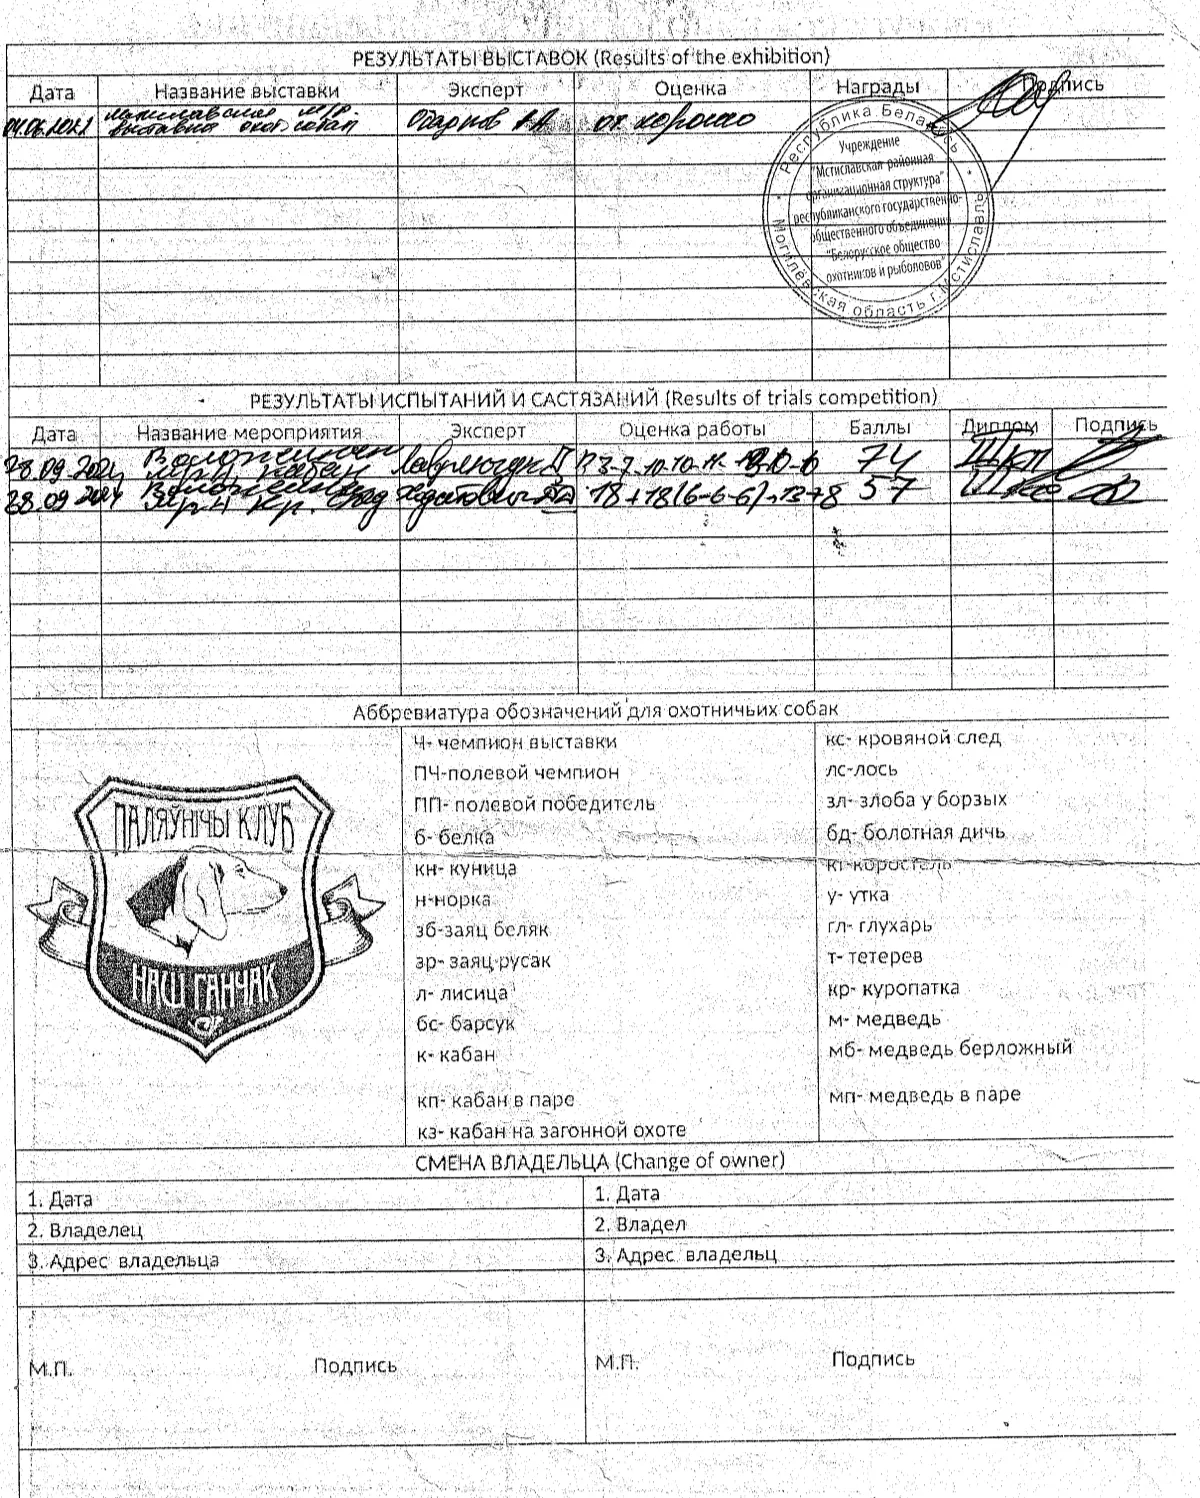 РЕЗУЛЬТАТЫ ВЫСТАВОК (Results of the exhibition)
Дата Название выставки Эксперт Оценка Награды Подпись
выставка охот. собак
от хорошо
Республика Беларусь
Учреждение
"Мстиславская районная
организационная структура"
республиканского государственно-
общественного объединения
"Белорусское общество
охотников и рыболовов"
Могилёвская область г.Мстиславль
РЕЗУЛЬТАТЫ ИСПЫТАНИЙ И САСТЯЗАНИЙ (Results of trials competition)
Дата Название мероприятия Эксперт Оценка работы Баллы Диплом Подпись
28.09.2024 кабан 74 III кп
28.09.2024 кр. след 18+18(6-6-6)+13+8 57 III кс
Аббревиатура обозначений для охотничьих собак
ПАЛЯЎНІЧЫ КЛУБ
НАШ ГАНЧАК
Ч- чемпион выставки
ПЧ-полевой чемпион
ПП- полевой победитель
б- белка
кн- куница
н-норка
зб-заяц беляк
зр- заяц русак
л- лисица
бс- барсук
к- кабан
кп- кабан в паре
кз- кабан на загонной охоте
кс- кровяной след
лс-лось
зл- злоба у борзых
бд- болотная дичь
кт-коростель
у- утка
гл- глухарь
т- тетерев
кр- куропатка
м- медведь
мб- медведь берложный
мп- медведь в паре
СМЕНА ВЛАДЕЛЬЦА (Change of owner)
1. Дата
2. Владелец
3. Адрес владельца
М.П. Подпись
1. Дата
2. Владел
3. Адрес владельц
М.П. Подпись